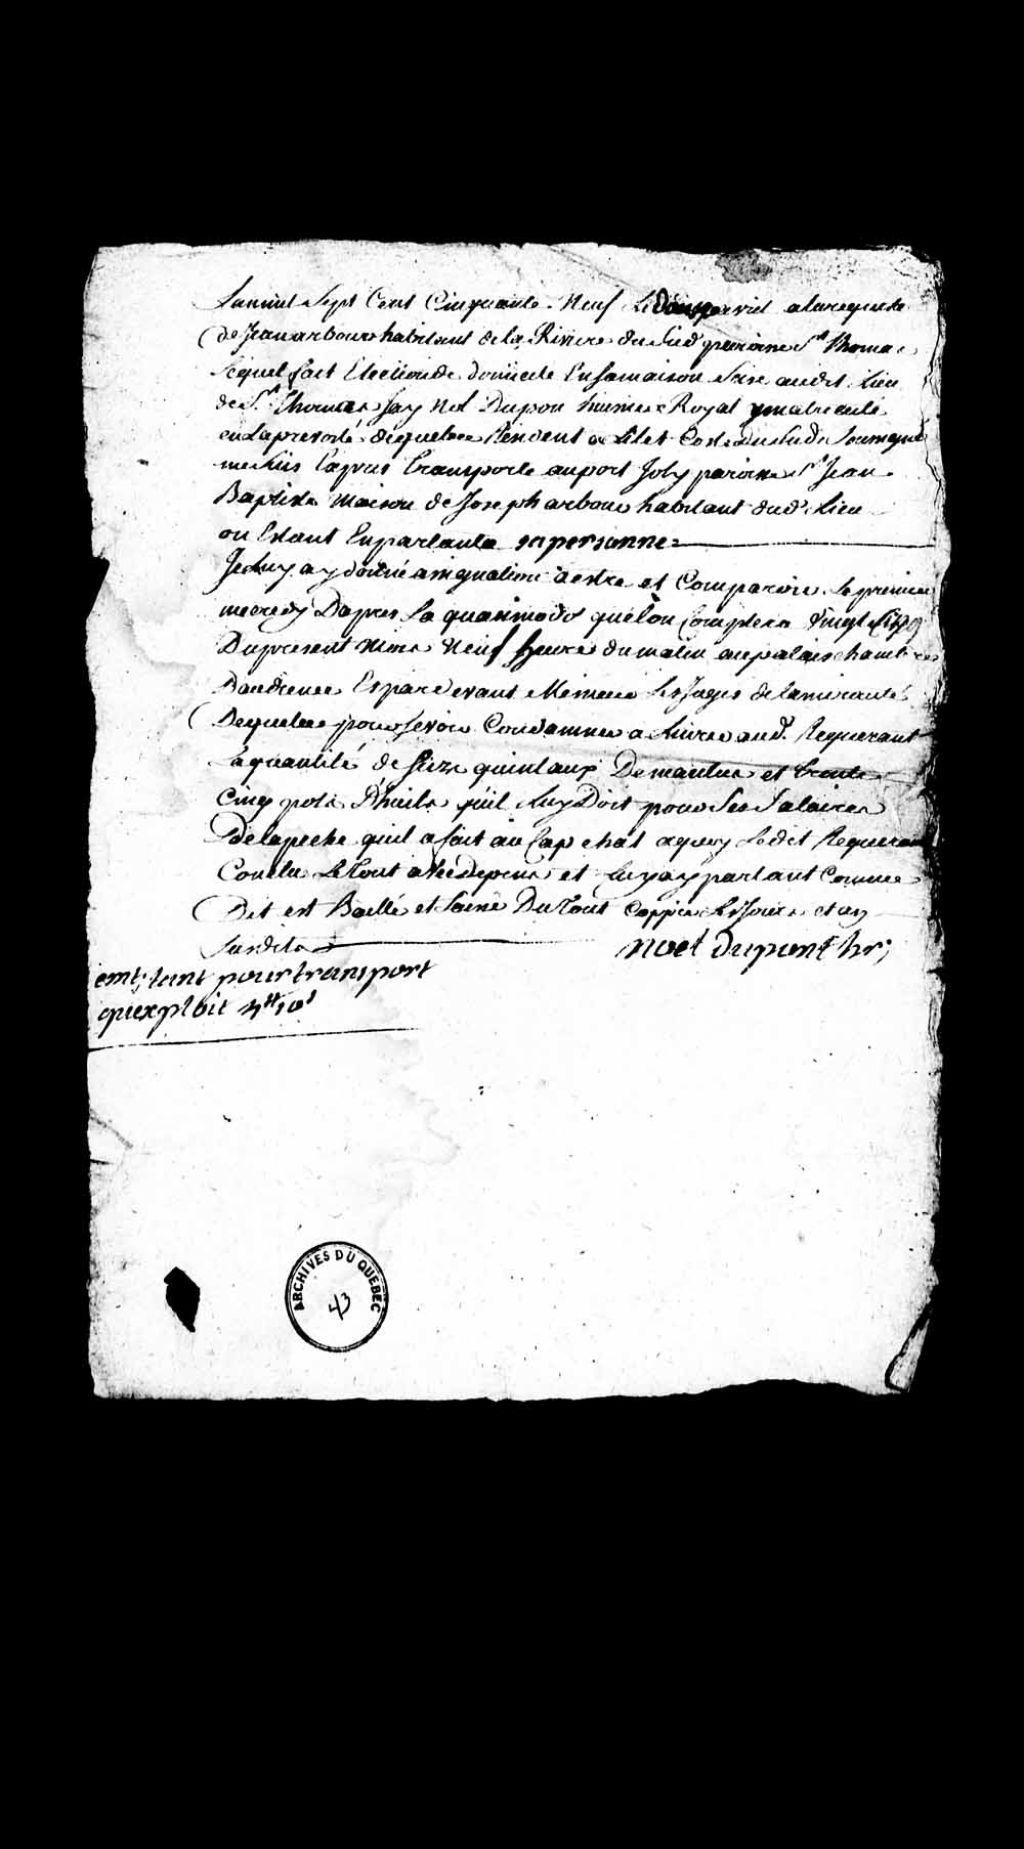 Lanmil Sept Cent Cinquante Neuf Le Douze avril alarequeste
de Jean arbour habitant de la Riviere du Sud paroisse St Thomas
Lequel fait Election de domicile Ensamaison Scize audit Lieu
de St Thomas Jay Noel Dupon huissier Royal ymatriculé
en Laprevosté dequebec Résident a Lilet Coste du Sud Soussigné
me suis Exprais transporté auport Joly paroisse St Jean
Baptiste maison de Joseph arbour habitant dud. Lieu
ou Estant Enparlanta sa personne
Jeluy ay donné assignation aestre et Comparoir Le premier
mecredy Daprés La quasimodo quélon Comptera Vingt Cinq
Dupresent mois Neuf heure du matin aupalais chambre
Daudience Et pardevant Messieurs Les Juges de lamirauté
Dequebec pour Sevoir Condamner a Livrer aud. Requerant
Laquantité de Seize quintaux De maulue et trente
Cinq pots D'huile quil Luy Doit pour Ses Salaires
Delapeche quil a fait au Cap chat aquoy Ledit Requerant
Conclu Le tout avec Depens et Luy ay parlant Comme
Dit est Baillé et Laissé Du tout Coppie Les Jours et an
Susdits
noel dupont hr;
emt; tant pour transport
qu'exploit 4tt 10s
ARCHIVES DU QUÉBEC
43